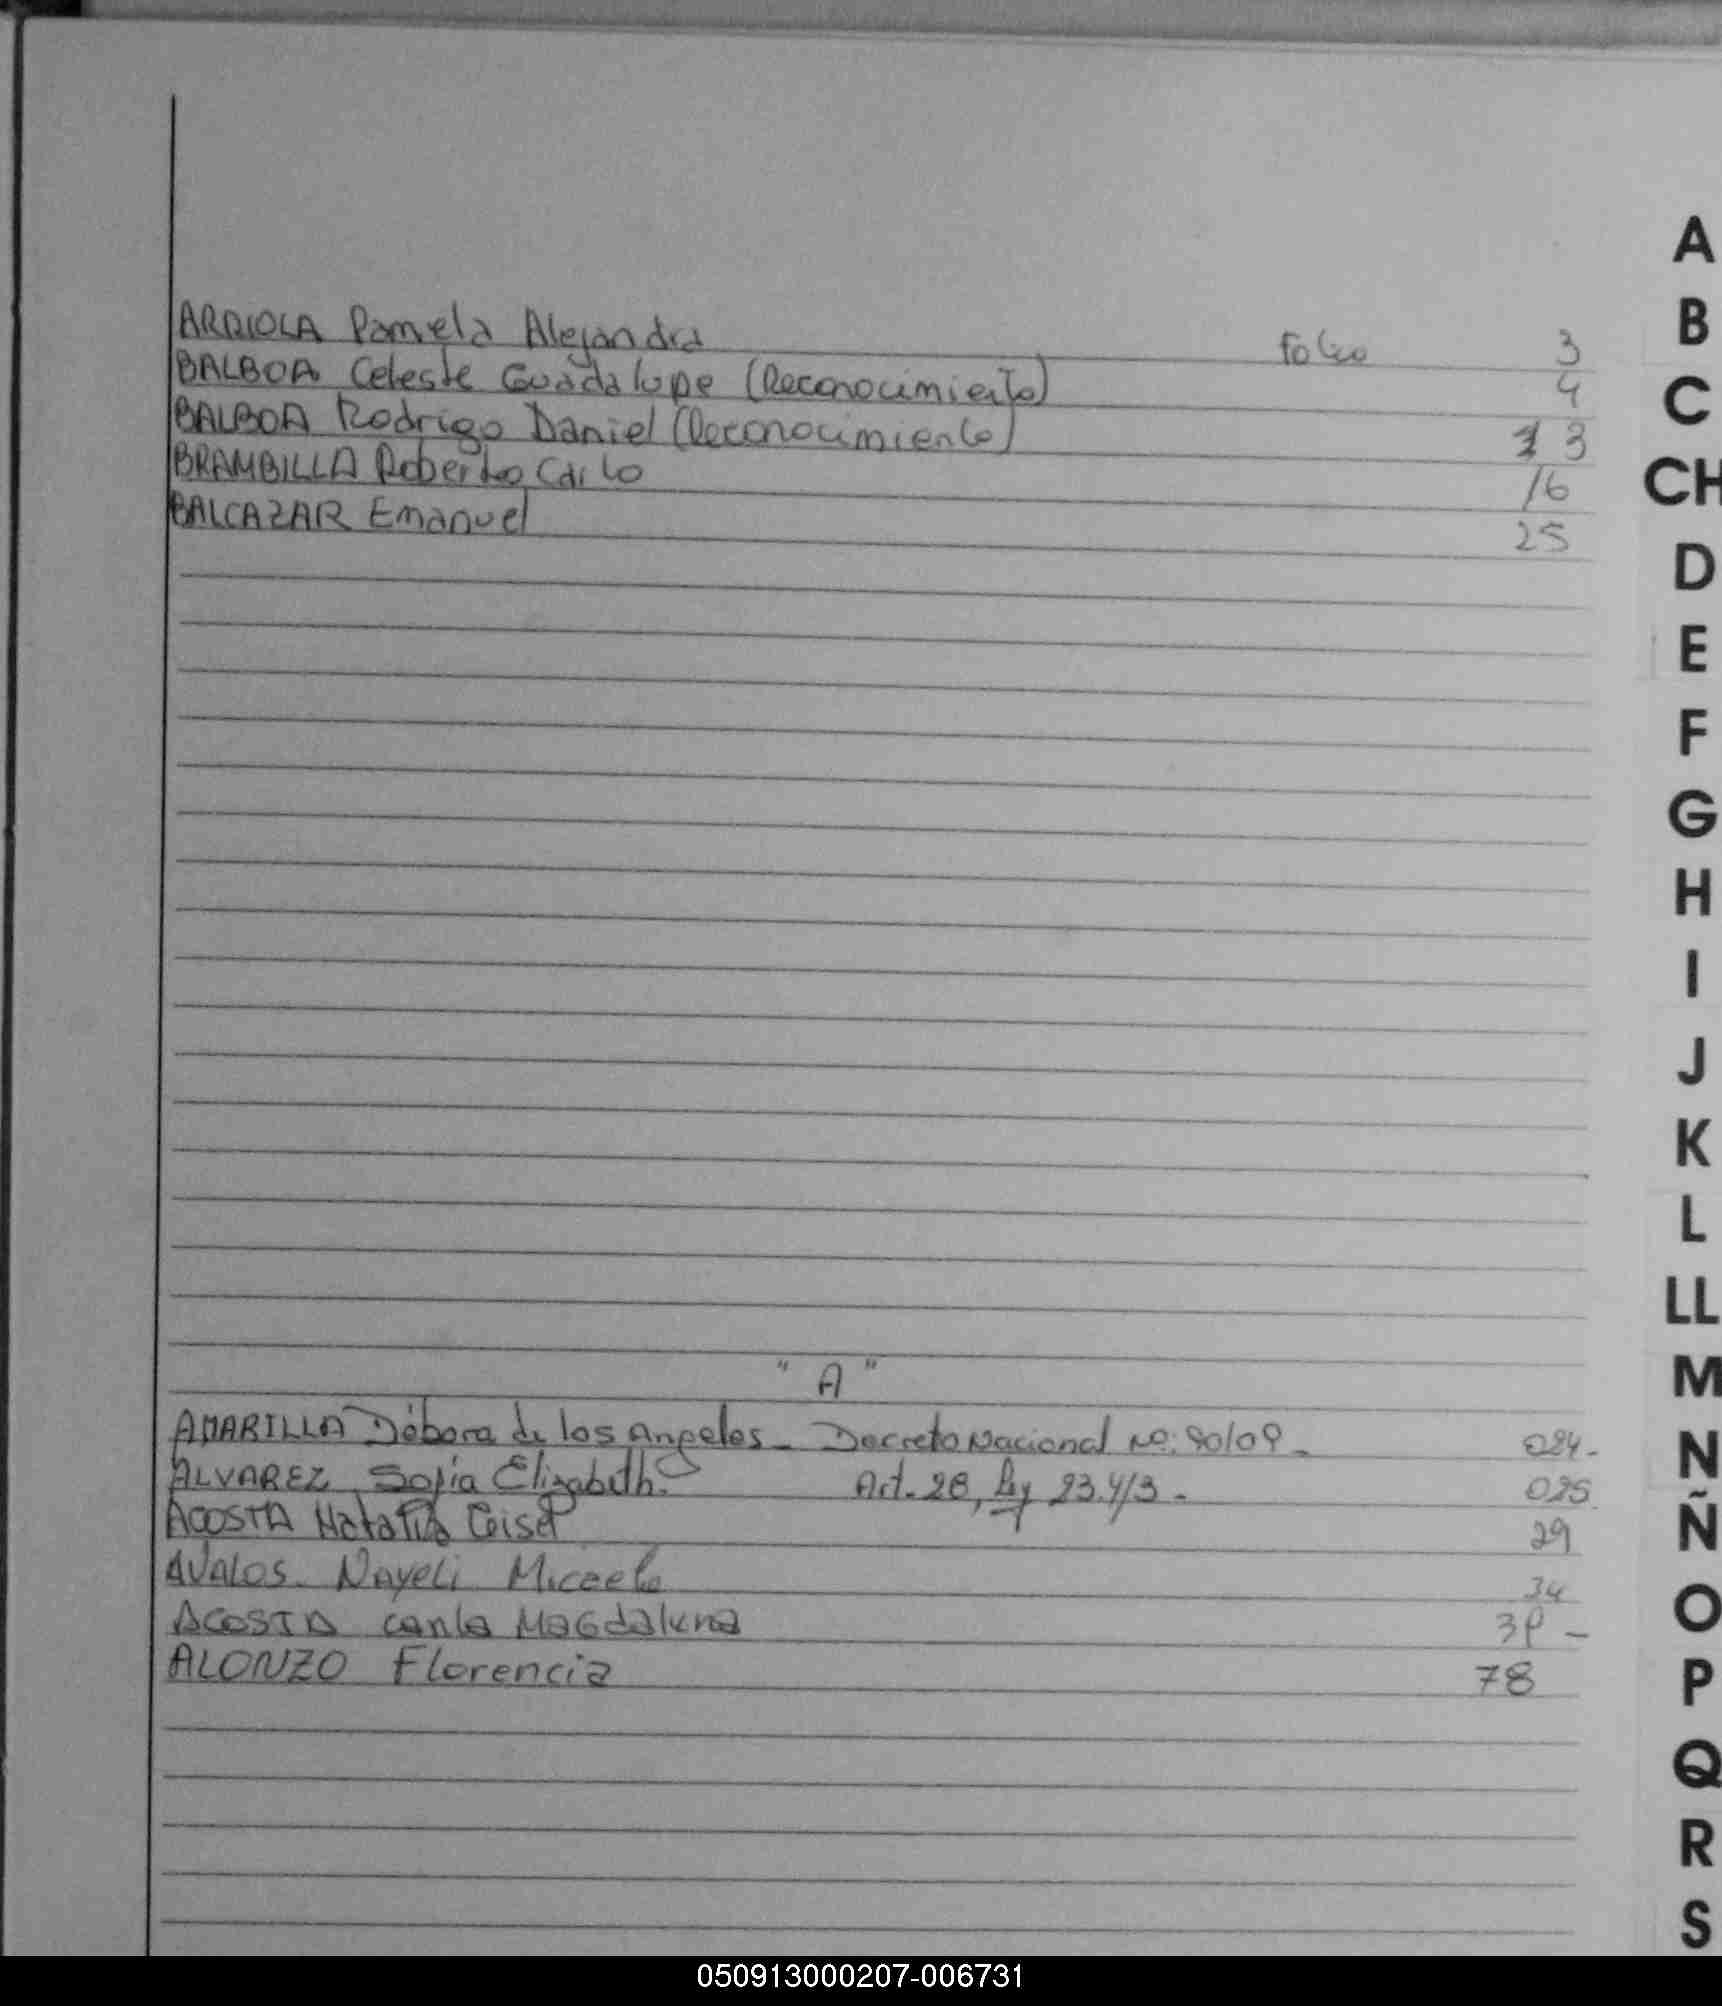 ARRIOLA Pamela Alejandra Folio 3
BALBOA Celeste Guadalupe (Reconocimiento) 4
BALBOA Rodrigo Daniel (Reconocimiento) 13
BRAMBILLA Roberto Carlo 16
BALCAZAR Emanuel 25
"A"
AMARILLA Débora de los Angeles - Decreto Nacional Nº: 90/09 - 024-
ALVAREZ Sofía Elizabeth. Art. 28, Ley 23.413 - 025
ACOSTA Natalia Geisel 29
AVALOS. Nayeli Micaela 34
ACOSTA Carla Magdalena -
ALONZO Florencia 78
A
B
C
CH
D
E
F
G
H
I
J
K
L
LL
M
N
Ñ
O
P
Q
R
S
050913000207-006731